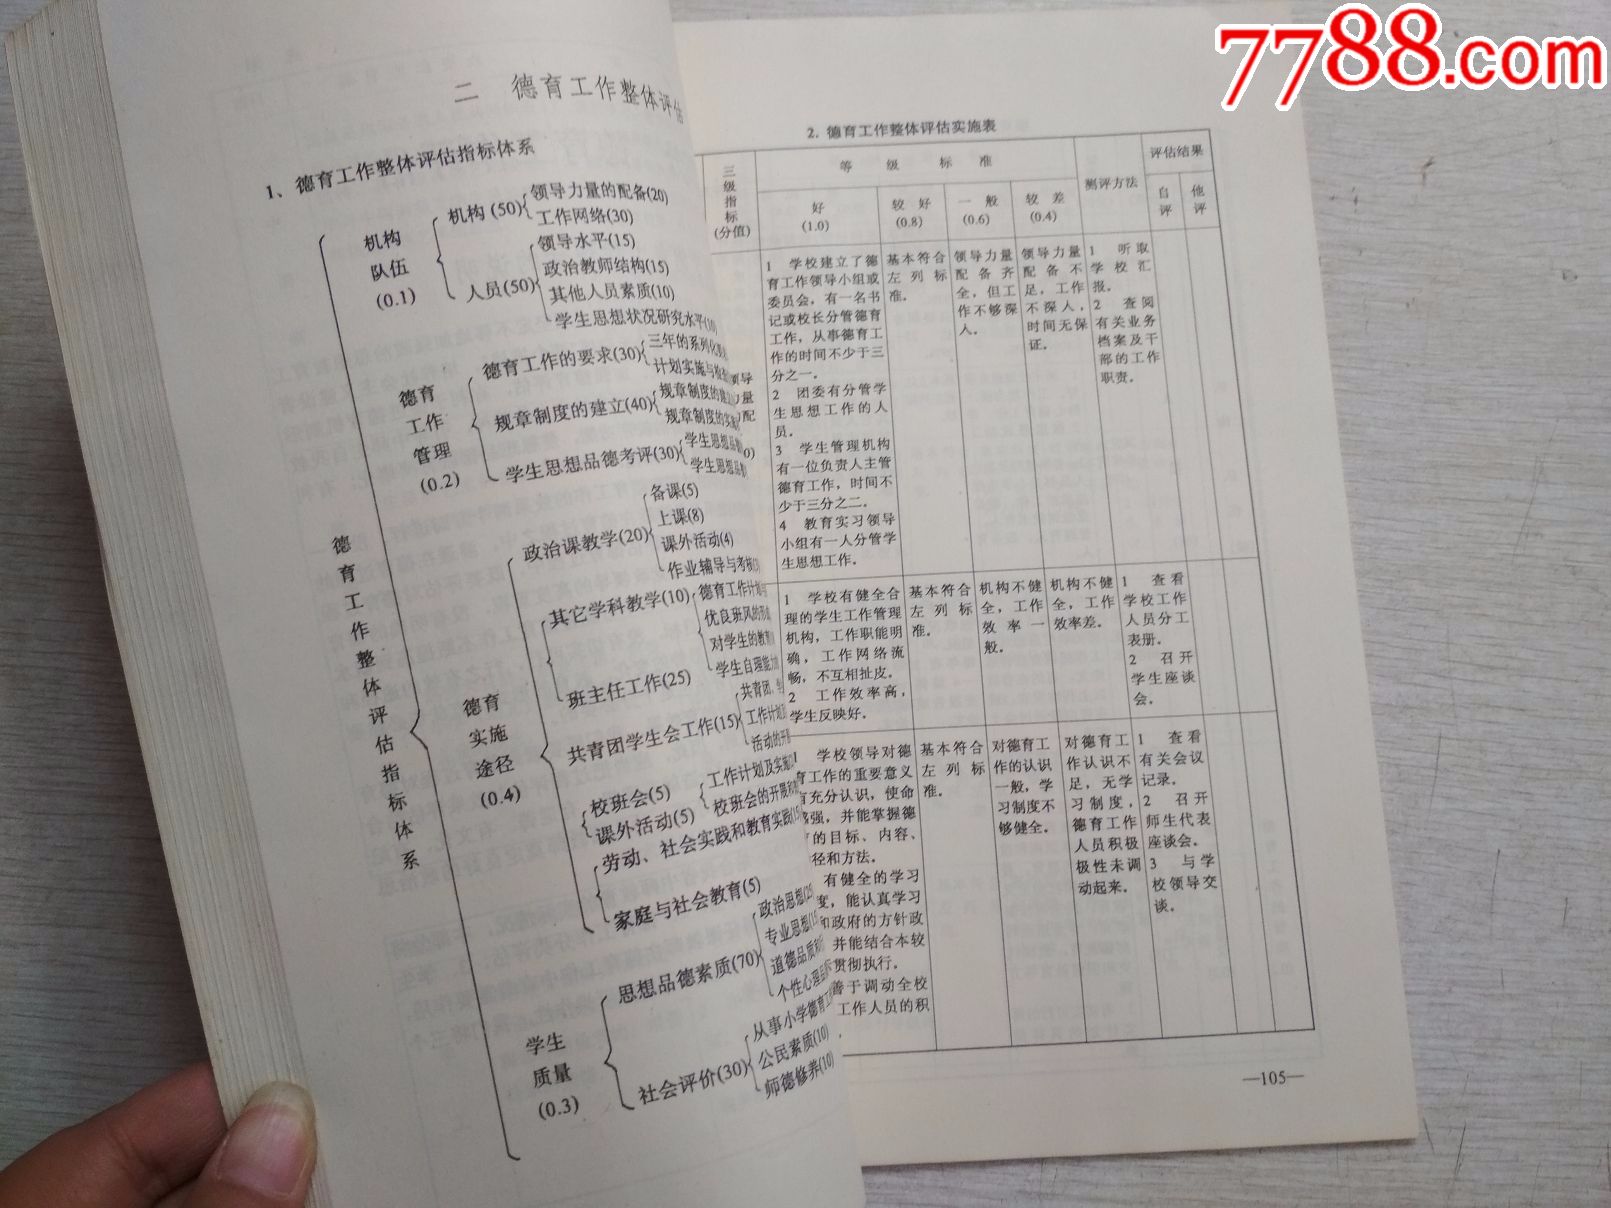 7788.com
二 德育工作整体评估
1、德育工作整体评估指标体系
德育工作整体评估指标体系
机构
队伍
(0.1)
机构(50)
领导力量的配备(20)
工作网络(30)
人员(50)
领导水平(15)
政治教师结构(15)
其他人员素质(10)
学生思想状况研究水平(10)
德育
工作
管理
(0.2)
德育工作的要求(30)
三年的系列化
计划实施与检
规章制度的建立(40)
规章制度的建立
规章制度的实施
学生思想品德考评(30)
学生思想品
学生思想品
德育
实施
途径
(0.4)
政治课教学(20)
备课(5)
上课(8)
课外活动(4)
作业辅导与考核(3)
其它学科教学(10)
班主任工作(25)
德育工作计划
优良班风的
对学生的教育
学生自理能力
共青团学生会工作(15)
共青团、
工作计划
活动的开
校班会(5)
课外活动(5)
工作计划及实施
校班会的开展和
劳动、社会实践和教育实践(15)
家庭与社会教育(5)
学生
质量
(0.3)
思想品德素质(70)
政治思想(25)
专业思想(1
道德品质和
个性心理品
社会评价(30)
从事小学德育工
公民素质(10)
师德修养(10)
2. 德育工作整体评估实施表
三级指标(分值)
等 级 标 准
测评方法
评估结果
好
(1.0)
较 好
(0.8)
一 般
(0.6)
较 差
(0.4)
自评
他评
导
量
配
1 学校建立了德
育工作领导小组或
委员会，有一名书
记或校长分管德育
工作，从事德育工
作的时间不少于三
分之一。
2 团委有分管学
生思想工作的人
员。
3 学生管理机构
有一位负责人主管
德育工作，时间不
少于三分之二。
4 教育实习领导
小组有一人分管学
生思想工作。
基本符合
左列标
准。
领导力量
配备齐
全，但工
作不够深
人。
领导力量
配备不
足，工作
不深人，
时间无保
证。
1 听取
学校汇
报。
2 查阅
有关业务
档案及干
部的工作
职责。
1 学校有健全合
理的学生工作管理
机构，工作职能明
确，工作网络流
畅，不互相扯皮。
2 工作效率高，
学生反映好。
基本符合
左列标
准。
机构不健
全，工作
效率一
般。
机构不健
全，工作
效率差。
1 查看
学校工作
人员分工
表册。
2 召开
学生座谈
会。
学校领导对德
育工作的重要意义
有充分认识，使命
感强，并能掌握德
的目标、内容、
径和方法。
有健全的学习
度，能认真学习
和政府的方针政
并能结合本较
贯彻执行。
善于调动全校
工作人员的积
基本符合
左列标
准。
对德育工
作的认识
一般，学
习制度不
够健全。
对德育工
作认识不
足，无学
习制度，
德育工作
人员积极
极性未调
动起来。
1 查看
有关会议
记录。
2 召开
师生代表
座谈会。
3 与学
校领导交
谈。
—105—